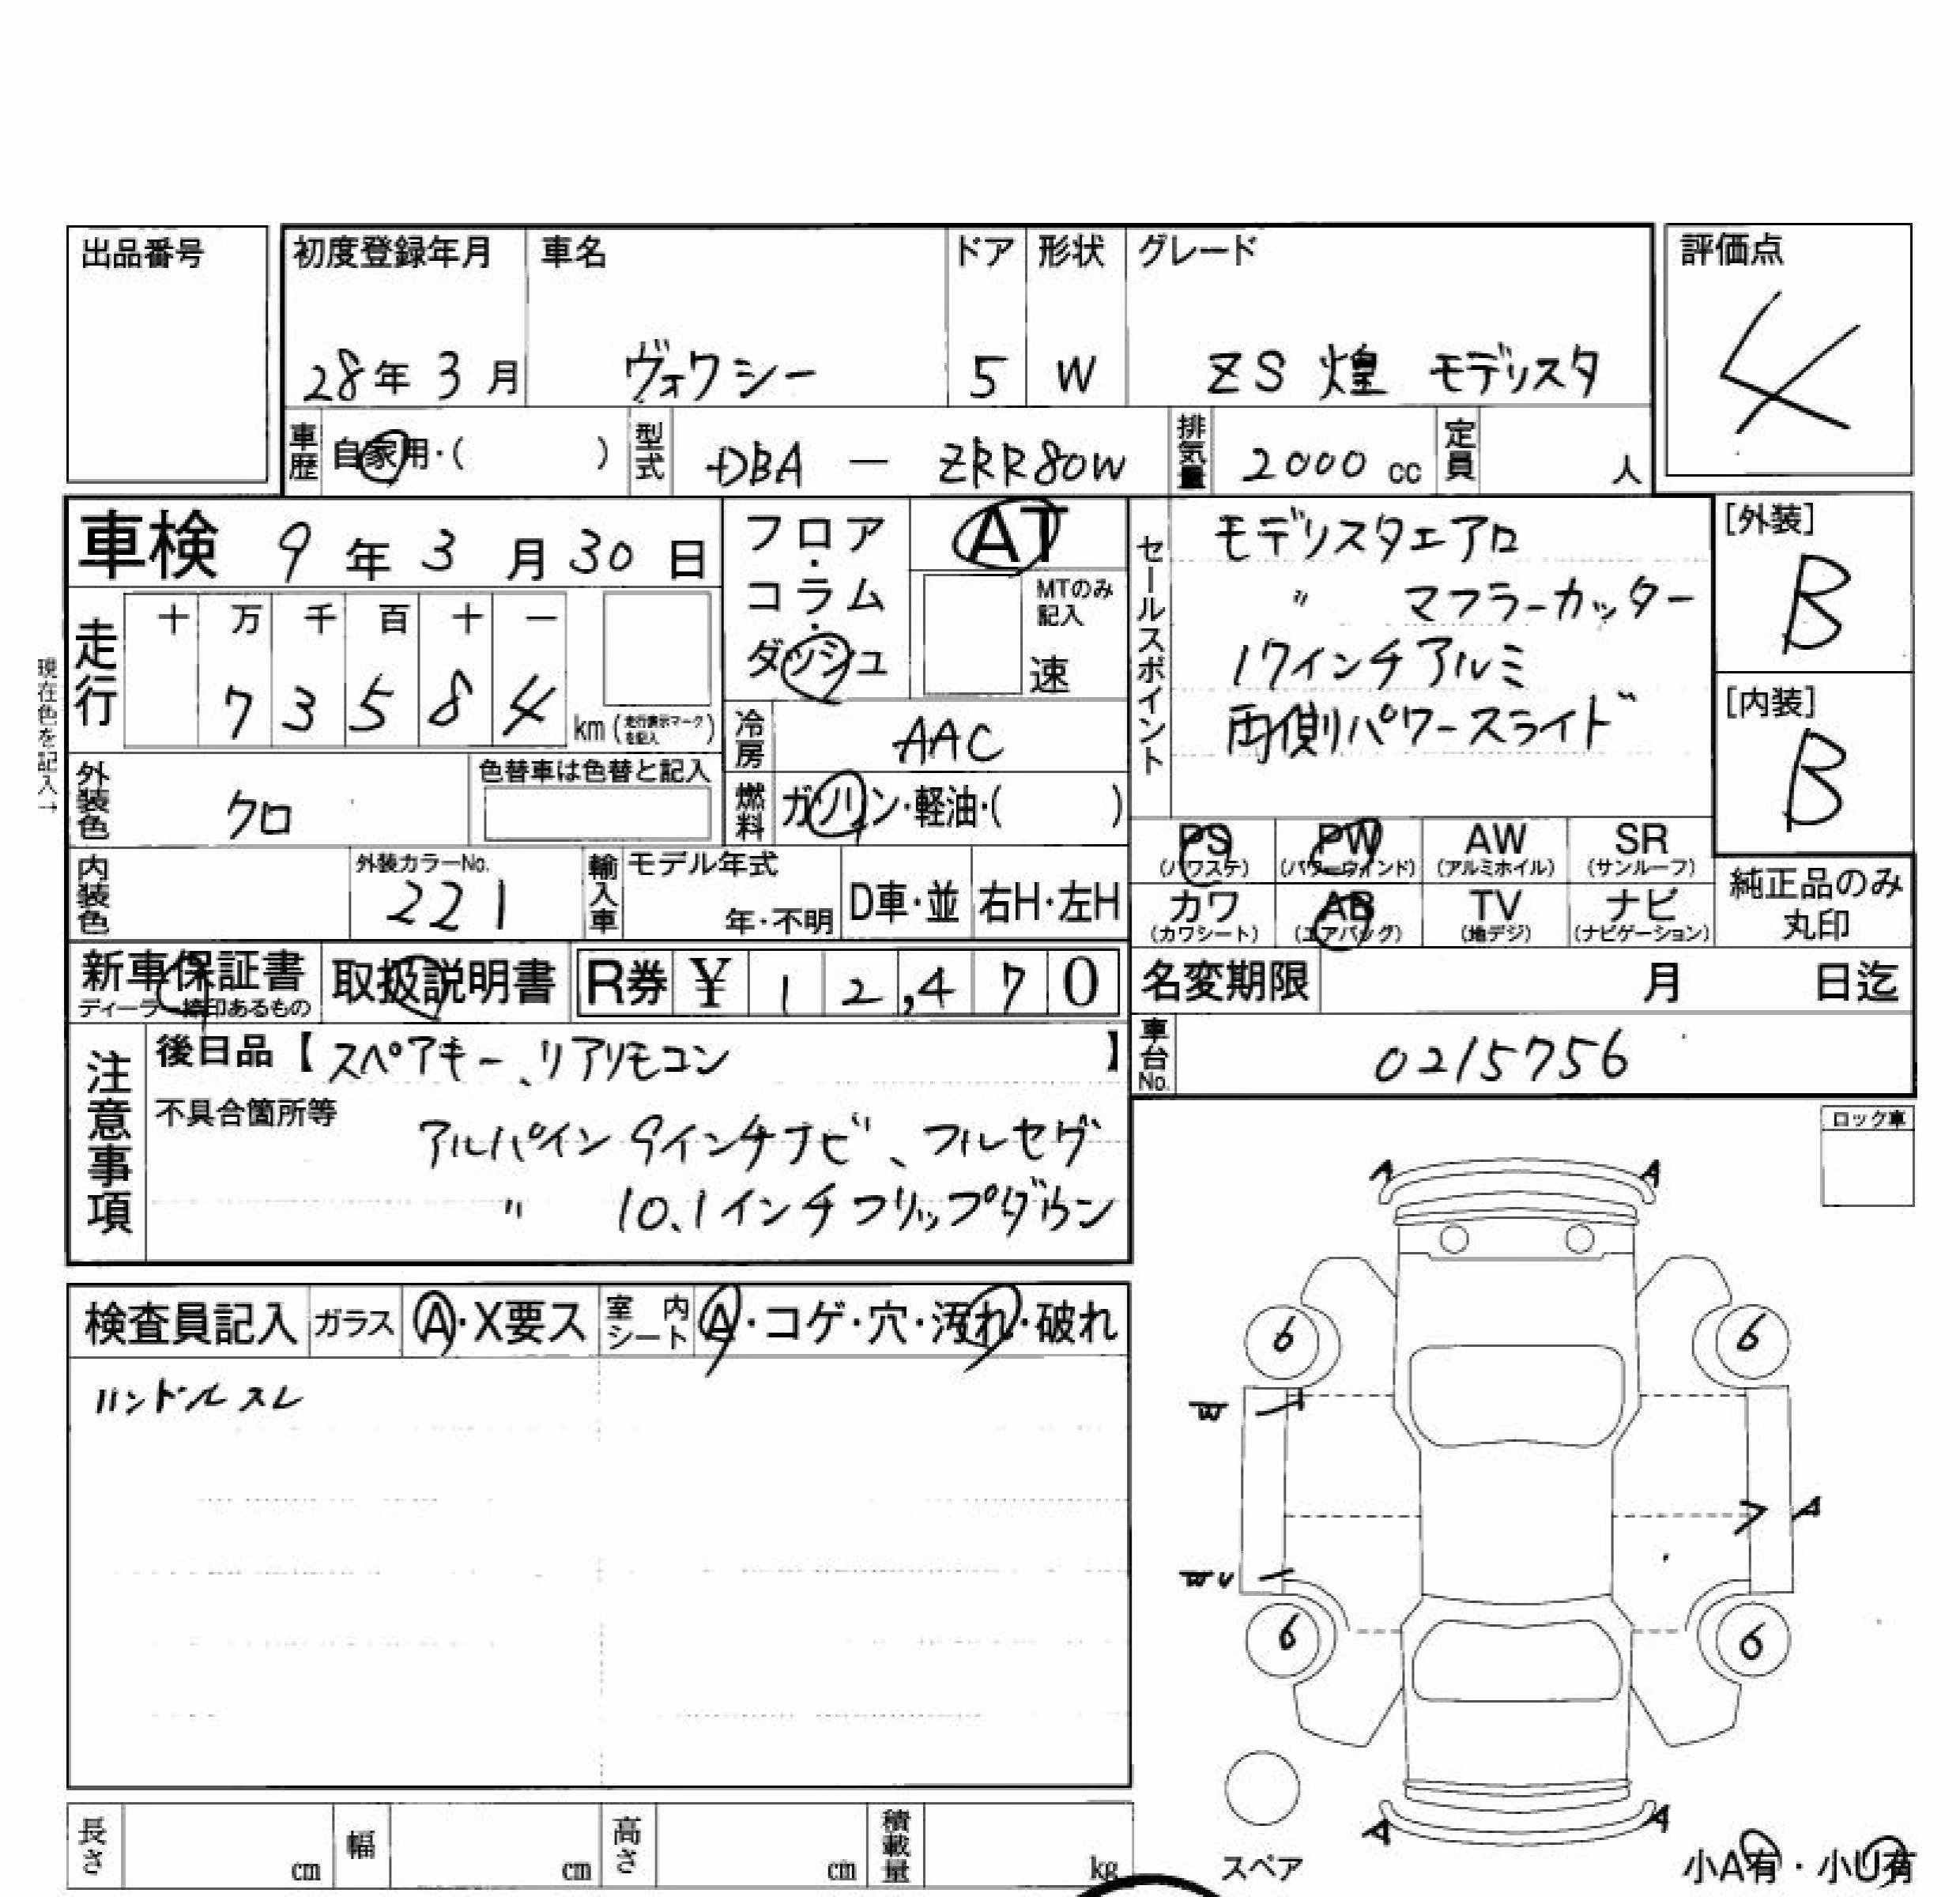 出品番号
初度登録年月 車名 ドア 形状 グレード 評価点
28年 3月 ヴォクシー 5 W ZS 煌 モデリスタ 4
車歴 自家用・( ) 型式 DBA - ZRR80W 排気量 2000 cc 定員 人
車検 9年 3月 30日
フロア・コラム・ダッシュ
AT
MTのみ記入
速
セールスポイント
モデリスタエアロ
〃 マフラーカッター
17インチアルミ
両側パワースライド
[外装]
B
[内装]
B
現在色を記入→
走行 十 万 千 百 十 一
7 3 5 8 4 km (走行表示マークを記入)
冷房 AAC
外装色 クロ 色替車は色替と記入
燃料 ガソリン・軽油・( )
PS (パワステ) PW (パワーウィンド) AW (アルミホイル) SR (サンルーフ)
カワ (カワシート) AB (エアバッグ) TV (地デジ) ナビ (ナビゲーション)
純正品のみ丸印
内装色 外装カラーNo. 221 輸入車 モデル年式 年・不明 D車・並 右H・左H
新車保証書 ディーラー捺印あるもの 取扱説明書 R券 ¥ 1 2,4 7 0
名変期限 月 日迄
車台No. 0215756
注意事項
後日品【スペアキー、リアリモコン】
不具合箇所等
アルパイン 9インチナビ、フルセグ
〃 10.1インチフリップダウン
ロック車
検査員記入 ガラス A・X要ス 室内シート A・コゲ・穴・汚れ・破れ
ハンドルスレ
A A
6 6
W
A
WU
6 6
A A
スペア
小A有・小U有
長さ cm 幅 cm 高さ cm 積載量 kg